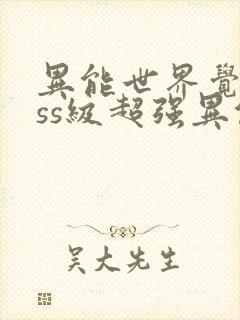 異能世界覺
ss級超强異
吴大先生